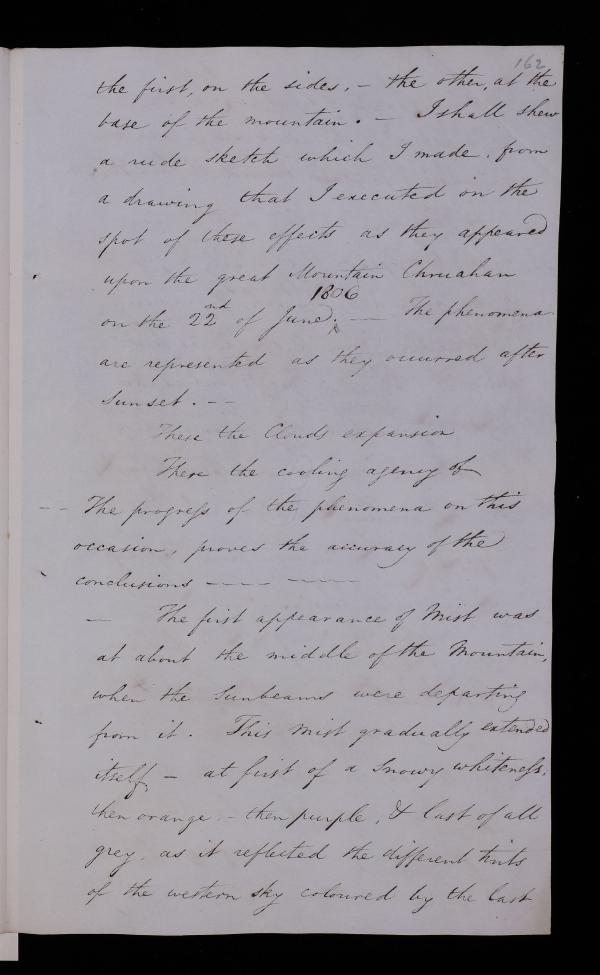 162
the first, on the sides, – the other, at the
base of the mountain. – I shall shew
a rude sketch which I made, from
a drawing that I executed on the
spot of these effects as they appeared
upon the great Mountain Chruahan
1806
on the 22nd of June. — The phenomena
are represented as they occurred after
Sunset. - -
These the Clouds expansion
There the cooling agency of
- - The progress of the phenomena on this
occasion, proves the accuracy of the
conclusions ---- ----
— The first appearance of Mist was
at about the middle of the Mountain,
when the Sunbeams were departing
from it. This mist gradually extended
itself, – at first of a Snowy whiteness.
then orange – then purple, & last of all
grey, as it reflected the different tints
of the western sky coloured by the last